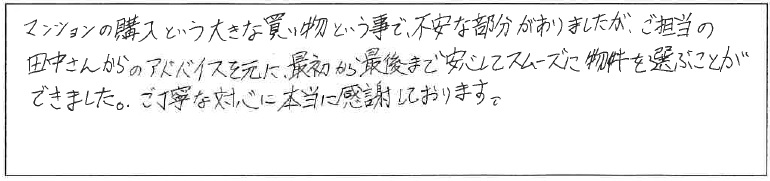 マンションの購入という大きな買い物という事で、不安な部分がありましたが、ご担当の
田中さんからのアドバイスを元に、最初から最後まで安心してスムーズに物件を選ぶことが
できました。ご丁寧な対応に本当に感謝しております。